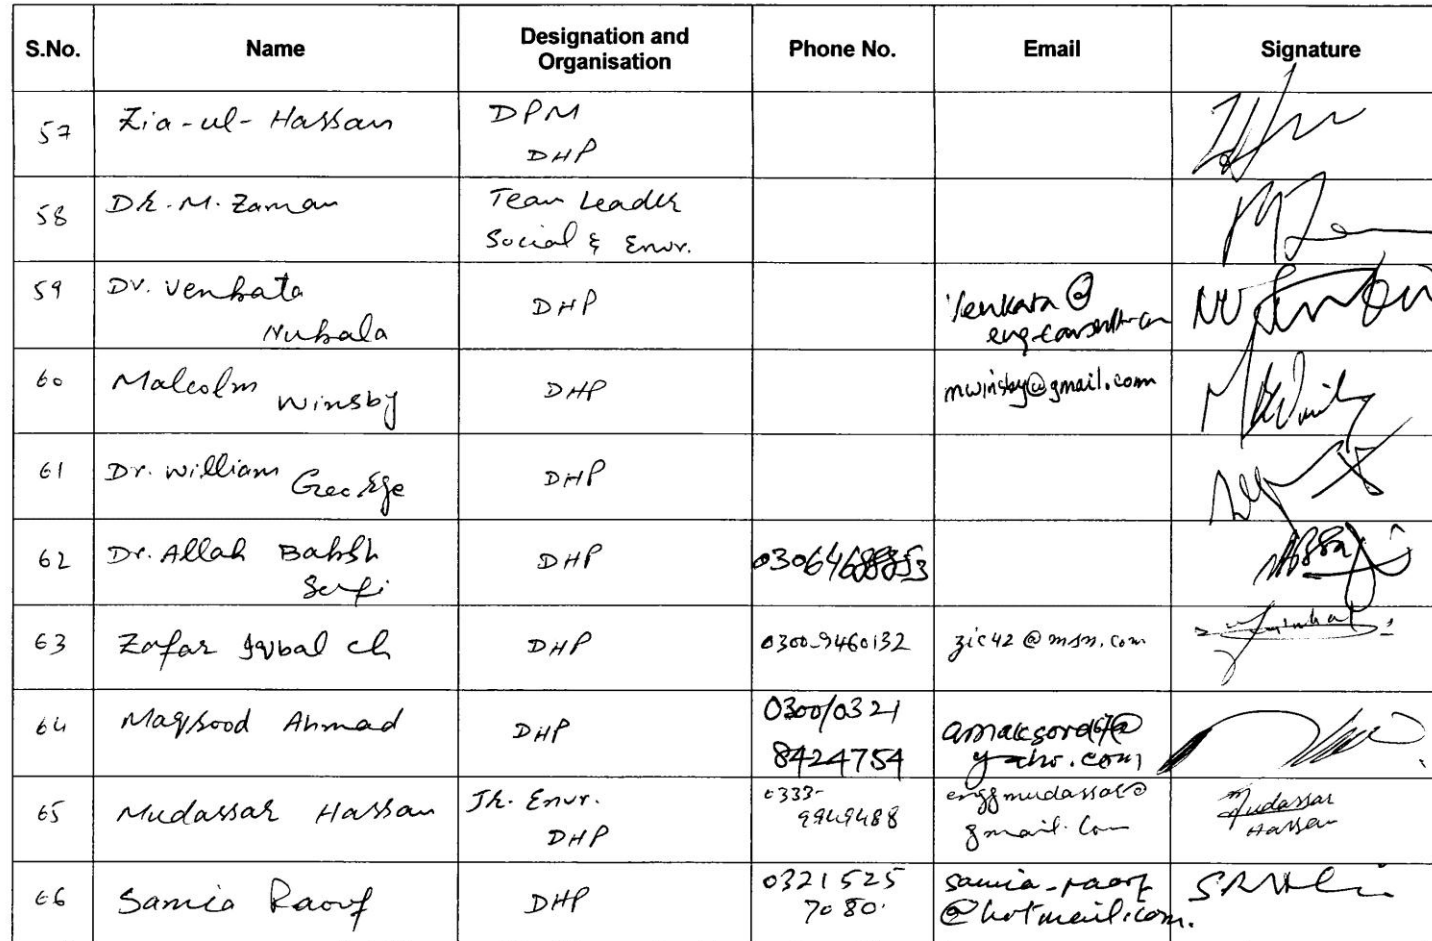 S.No. Name Designation and Organisation Phone No. Email Signature
57 Zia-ul-Hassan DPM
DHP
58 Dr. M. Zaman Team Leader
Social & Envr.
59 Dr. Venkata DHP Venkata@
Nukala
60 Malcolm Winsby DHP mwinsby@gmail.com
61 Dr. William George DHP
62 Dr. Allah Bakhsh DHP
Sufi
63 Zafar Iqbal ch DHP 0300-9460132 zic42@msn.com
64 Maqsood Ahmad DHP 0300/0321
8424754 yahoo.com
65 Mudassar Hassan Jr. Envr. 0333- enggmudassar@ Mudassar
DHP 9949488 gmail.com Hassan
66 Samia Raouf DHP 0321 525 samia-raouf
7080. @hotmail.com.